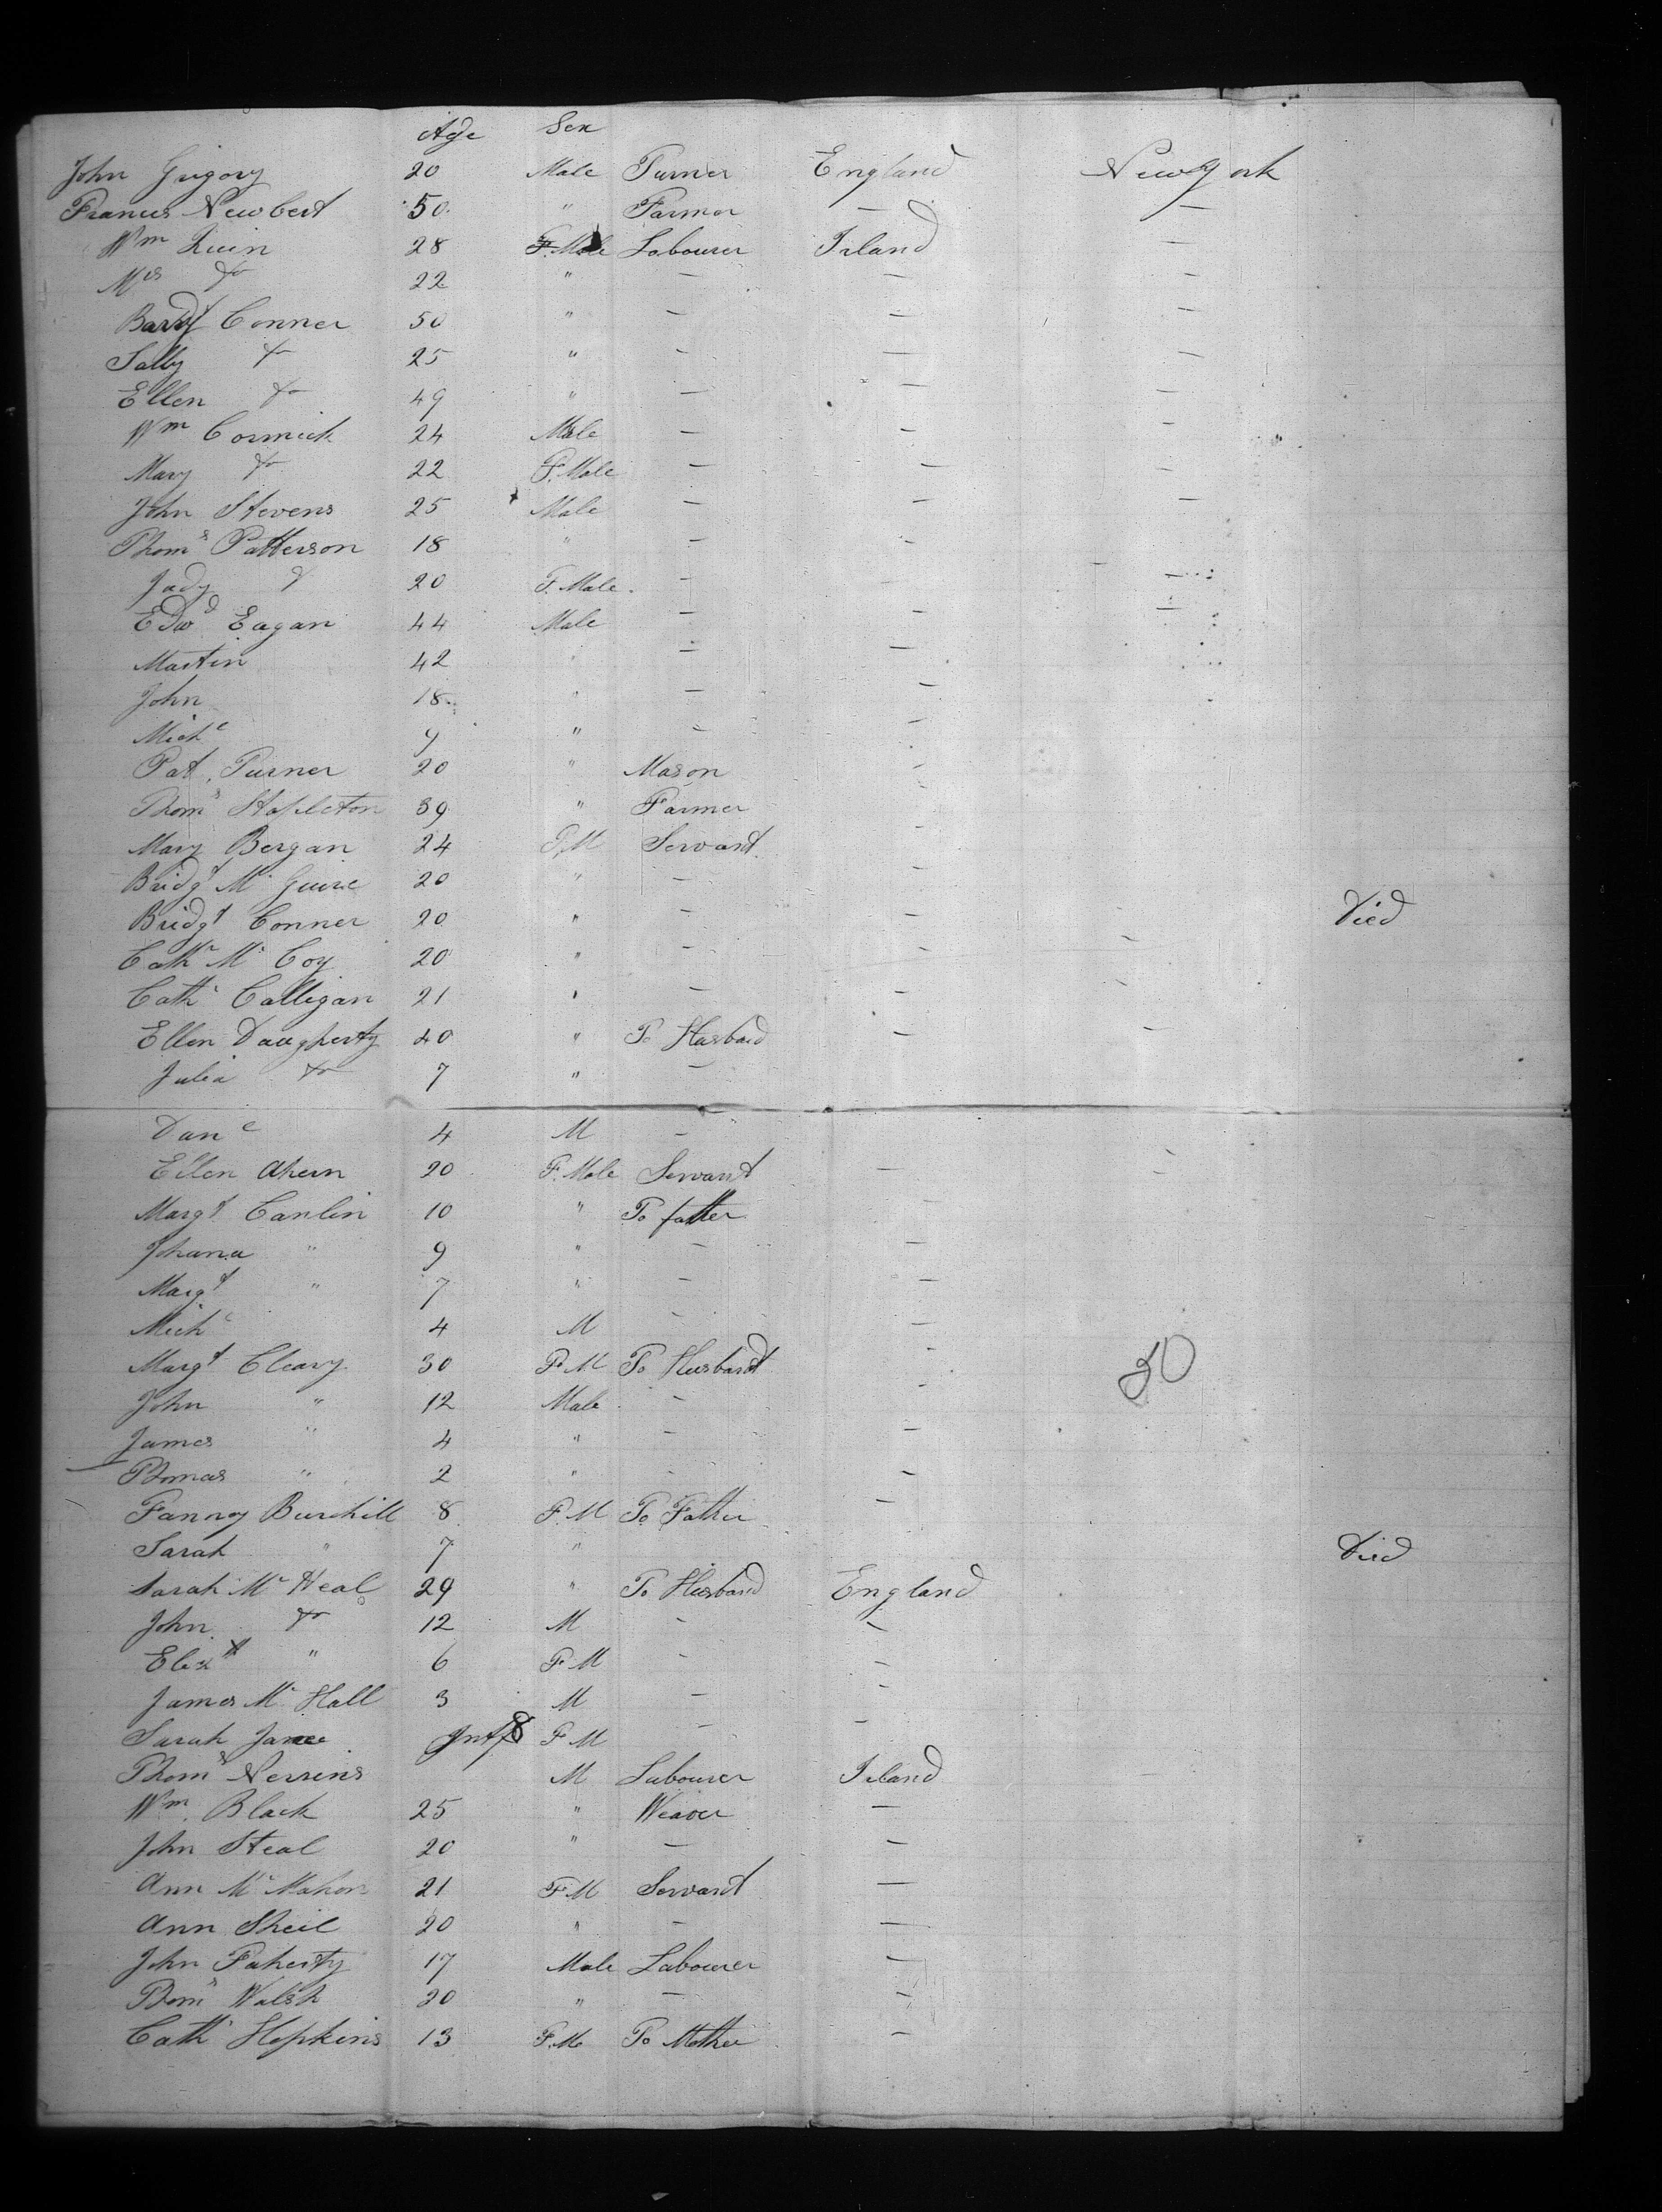 Age Sex
John Grigory 20 Male Turner England New York
Francis Newbert 50 " Farmer — —
Wm Quin 28 F. Male Labourer Irland —
Mrs Do 22 " — — —
Bardt Conner 50 " — — —
Sally Do 25 " — — —
Ellen Do 49 " — — —
Wm Cormick 24 Male — — —
Mary Do 22 F. Male — — —
John Stevens 25 Male — — —
Thoms Patterson 18 " — —
Jady D 20 F. Male — — —
Edwd Eagan 44 Male — — —
Martin 42 " — —
John 18 " — —
Michl 9 " — —
Pat. Turner 20 " Mason
Thoms Stapleton 39 " Farmer —
Mary Bergan 24 F.M Servant —
Bridgt Mc Guire 20 " — —
Bridgt Conner 20 " — — Died
Cathn Mc Coy 20 " — — —
Cath Calligan 21 " — — —
Ellen Daugherty 40 " To Hasband — —
Julia Do 7 " —
Danl 4 M —
Ellen Ahern 20 F. Male Servant —
Margt Canlin 10 " To father —
Johana " 9 " — —
Margt " 7 " — —
Michl 4 M — —
Margt Cleary 30 F.M To Husband —
50
John " 12 Male — —
James " 4 " — —
Thomas " 2 " — —
Fanny Burchill 8 F.M To Father —
Sarah " 7 " Died
Sarah Mc Heal 29 " To Husband England
John Do 12 M — —
Elizth " 6 F M — —
James Mc Hall 3 M — —
Sarah Jane Inft F M — —
Thoms Nerrins M Labourer Irland
Wm Black 25 " Weaver —
John Steal 20 " — —
Ann Mc Mahon 21 F M Servant —
Ann Sheil 20 " — —
John Faherty 17 Male Labourer —
Thoms Walsh 20 " — —
Cath Hopkins 13 F.M To Mother —